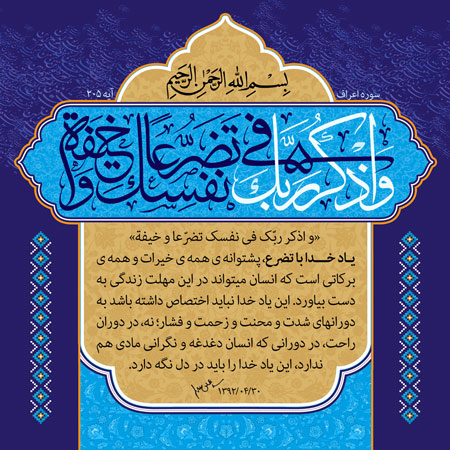 بِسْمِ اللهِ الرَّحْمٰنِ الرَّحِیمِ
سوره اعراف
آیه ۲۰۵
وَاذْكُر رَبَّكَ فی نَفْسِكَ تَضَرُّعاً وَ خیفَةً
«و اذکر ربّک فی نفسک تضرّعا و خیفة»
یاد خدا با تضرع، پشتوانه ی همه ی خیرات و همه ی
برکاتی است که انسان میتواند در این مهلت زندگی به
دست بیاورد. این یاد خدا نباید اختصاص داشته باشد به
دورانهای شدت و محنت و زحمت و فشار؛ نه، در دوران
راحت، در دورانی که انسان دغدغه و نگرانی مادی هم
ندارد، این یاد خدا را باید در دل نگه دارد.
۱۳۹۲/۰۴/۳۰